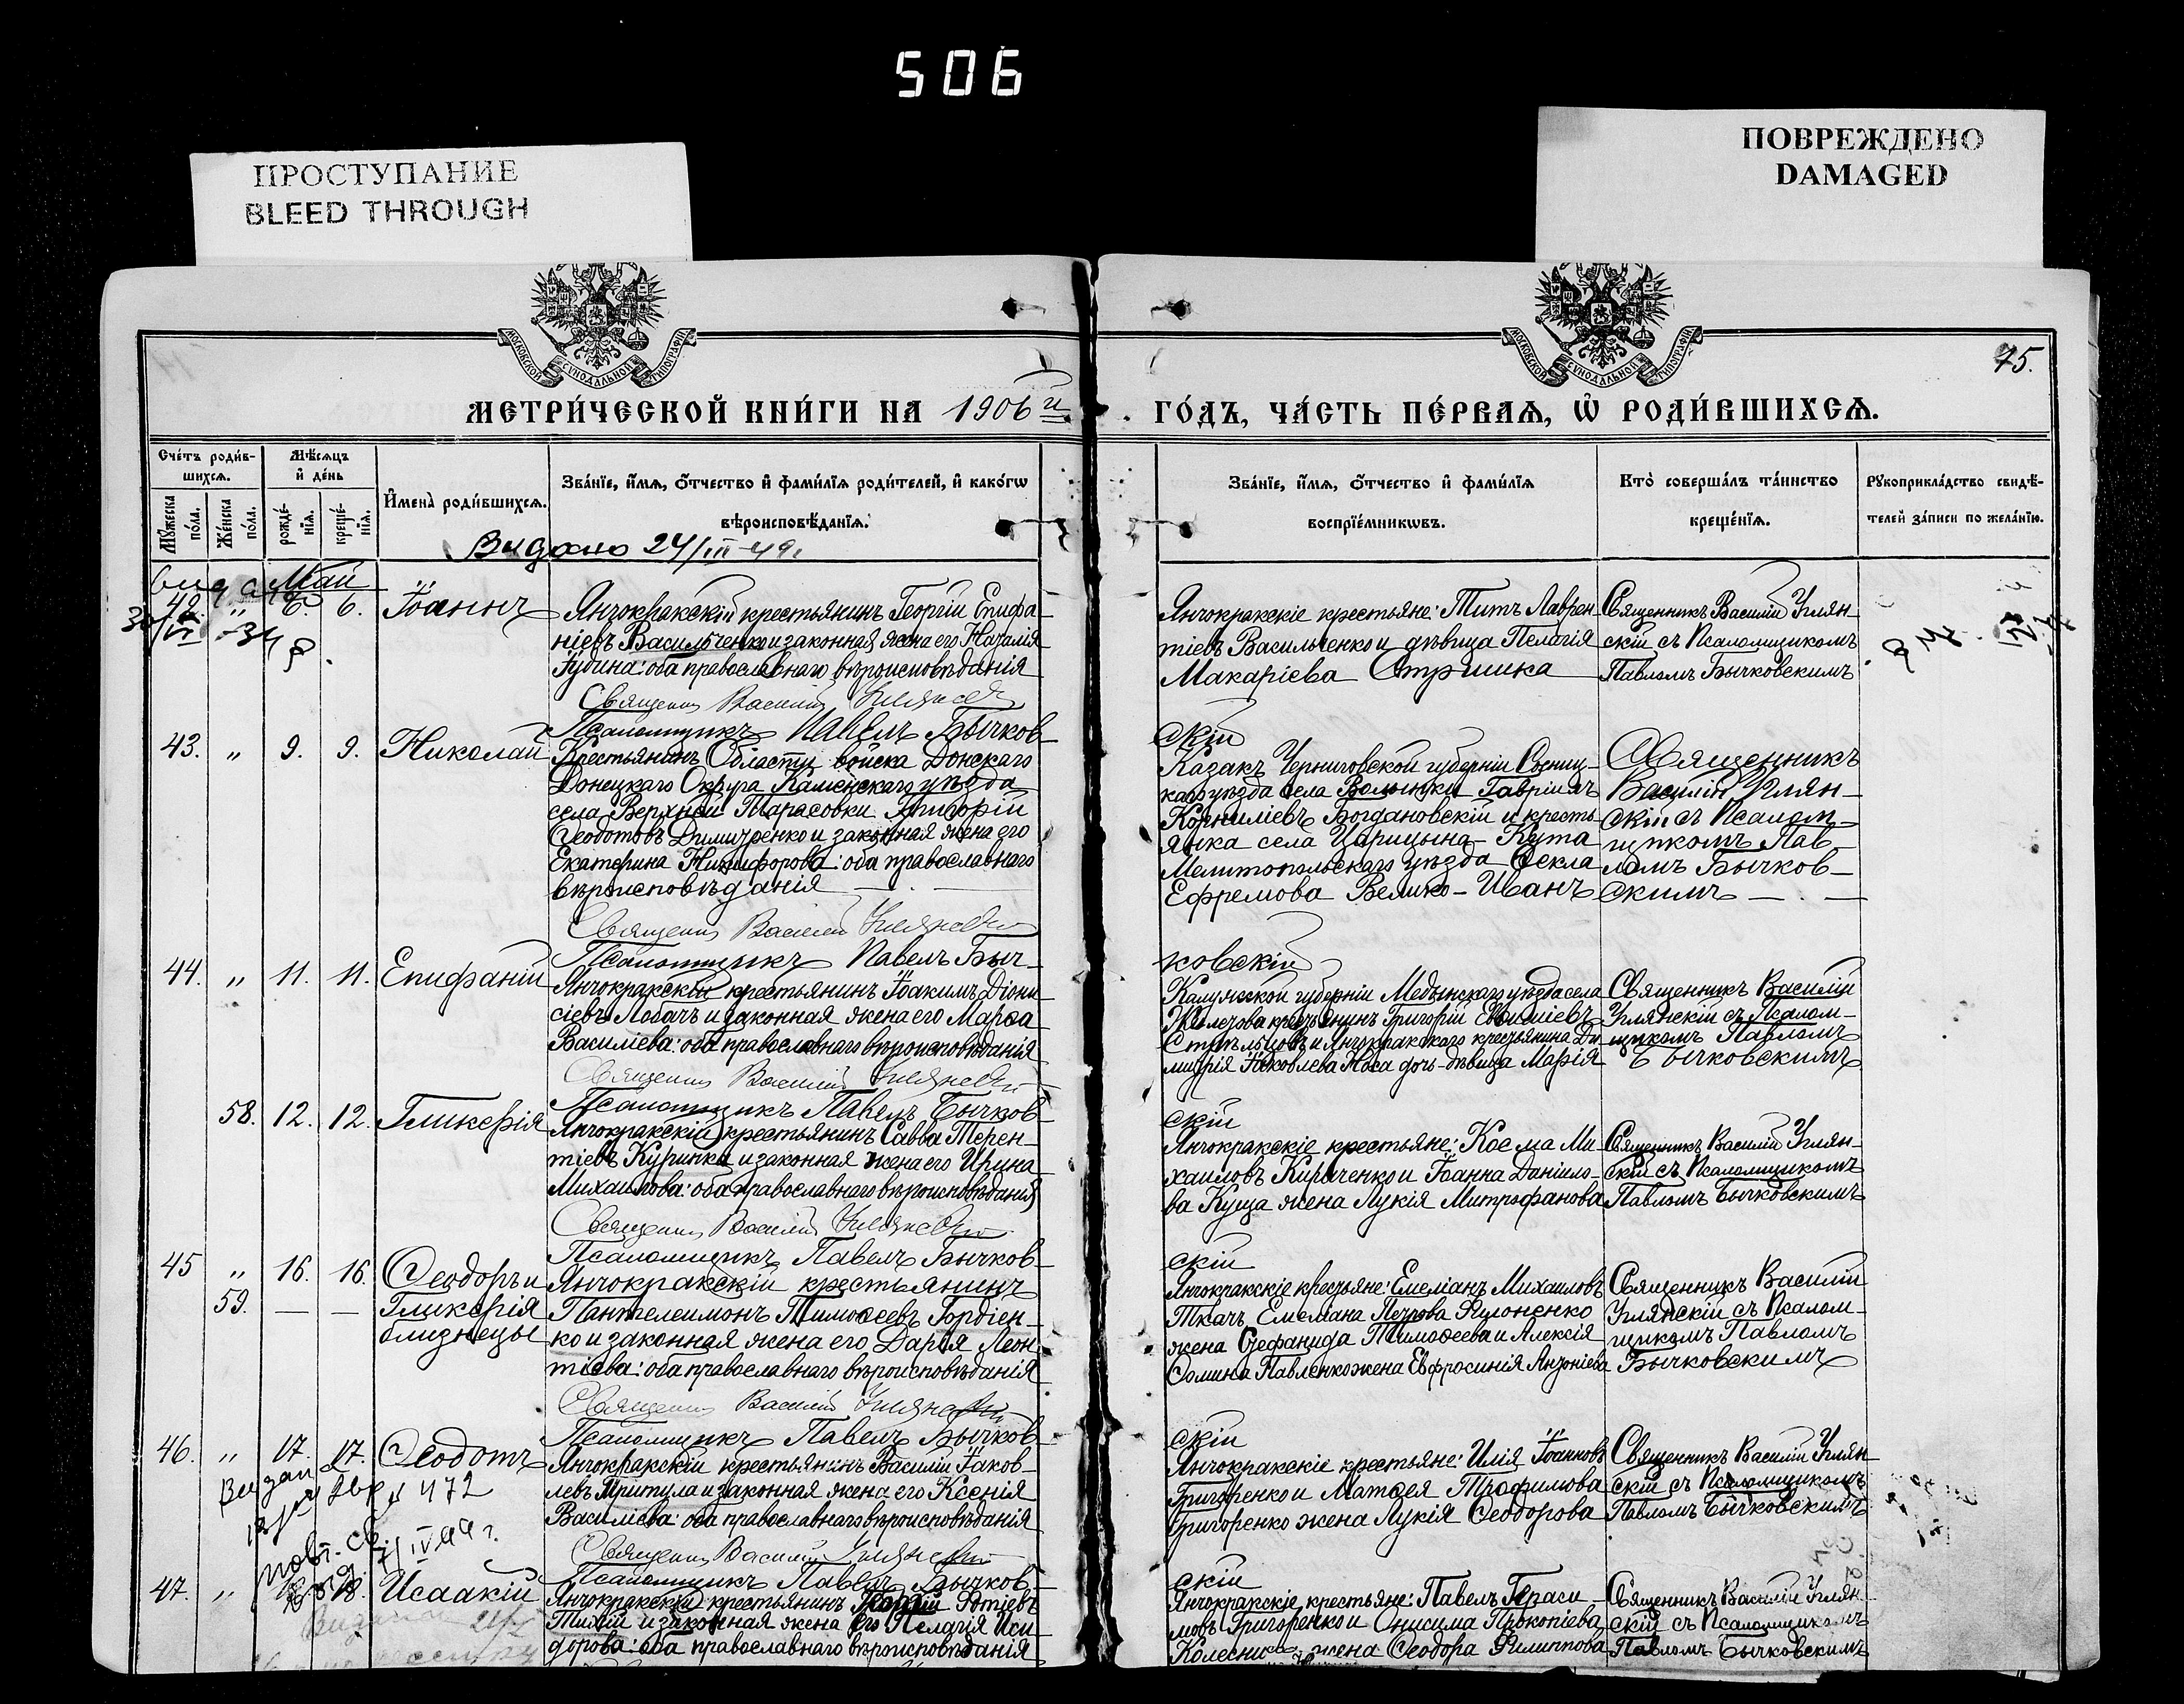 506
ПРОСТУПАНИЕ
BLEED THROUGH
ПОВРЕЖДЕНО
DAMAGED
МОСКОВСКОЙ СѴНОДАЛЬНОЙ ТИПОГРАФІИ
МОСКОВСКОЙ СѴНОДАЛЬНОЙ ТИПОГРАФІИ
75.
МЕТРИ́ЧЕСКОЙ КНИ́ГИ НА 1906й
ГО́ДЪ, ЧА́СТЬ ПЕ́РВАѦ, Ѡ҆ РОДИ́ВШИХСѦ.
Сче́тъ роди́в-
шихсѧ.
Мѣ́сѧцъ
и҆ де́нь
Мꙋ́жеска по́ла.
Же́нска по́ла.
рожде́-нїѧ.
креще́-нїѧ.
И҆мена̀ роди́вшихсѧ.
Зва́нїе, и҆́мѧ, ѻ҆́тчество и҆ фами́лїѧ роди́телей, и҆ како́гѡ
вѣроисповѣ́данїѧ.
Зва́нїе, и҆́мѧ, ѻ҆́тчество и҆ фами́лїѧ
воспрїе́мникѡвъ.
Кто̀ соверша́лъ та́инство
креще́нїѧ.
Рꙋкоприкла́дство свидѣ́-
телей за́писи по жела́нїю.
Видано 24/III-49.
Май
42. " 6. 6. Іоаннъ
Янчокракскій крестьянинъ Георгій Епифа
ніевъ Васильченко и законная жена его Наталія
Гудина: оба православнаго вѣроисповѣданія
Священник Василий Углянский
Псаломщикъ Павелъ Бычков-
скій
Янчокракскіе крестьяне: Титъ Лаврен
тіевъ Васильченко и дѣвица Пелагія
Макаріева Стришка
Священникъ Василій Углян-
скій съ Псаломщикомъ
Павломъ Бычковскимъ
43. " 9. 9. Николай
Крестьянинъ Области войска Донскаго
Донецкаго Округа Каменскаго уѣзда
села Верхней Тарасовки Григорій
Ѳеодотовъ Димитренко и законная жена его
Екатерина Никифорова: оба православнаго
вѣроисповѣданія
Священник Василий Углянский
Псаломщикъ Павелъ Быч-
ковскій
Казакъ Черниговской губерніи Сосниц-
каго уѣзда села Волынки Гавріилъ
Корниліевъ Богдановскій и кресть-
янка села Царицына-Кута
Мелитопольскаго уѣзда Ѳекла
Ефремова Велико-Иванъ
Священникъ
Василій Углян-
скій съ Псалом-
щикомъ Пав-
ломъ Бычков-
скимъ
44. " 11. 11. Епифаній
Янчокракскій крестьянинъ Іоакимъ Діони
сіевъ Лобачъ и законная жена его Марѳа
Василіева: оба православнаго вѣроисповѣданія
Священник Василий Углянский
Псаломщикъ Павелъ Бычков-
скій
Калужской губерніи Медынскаго уѣзда села
крестьянинъ Григорій Евѳиміевъ
Стрѣльцовъ и Янчокракскаго крестьянина Ди
митрія Іаковлева Носа дочь-дѣвица Марія
Священникъ Василій
Углянскій съ Псалом-
щикомъ Павломъ
Бычковскимъ
58. 12. 12. Гликерія
Янчокракскій крестьянинъ Савва Терен-
тіевъ Куринка и законная жена его Ирина
Михаилова: оба православнаго вѣроисповѣданія
Священник Василий Углянский
Псаломщикъ Павелъ Бычков-
скій
Янчокракскіе крестьяне: Косма Ми-
хаиловъ Кириченко и Іоанна Даніило-
ва Куща жена Лукія Митрофанова
Священникъ Василій Углян-
скій съ Псаломщикомъ
Павломъ Бычковскимъ
45 " 16. 16. Ѳеодоръ и
59. — — Гликерія
близнецы
Янчокракскій крестьянинъ
Пантелеимонъ Тимоѳеевъ Гордіен-
ко и законная жена его Дарія Леон-
тіева: оба православнаго вѣроисповѣданія
Священник Василий Углянский
Псаломщикъ Павелъ Бычков-
скій
Янчокракскіе крестьяне: Емеліанъ Михаиловъ
Ткачъ, Емеліана Петрова Филоненко
жена Стефанида Тимоѳеева и Алексія
Ѳомина Павленко жена Евфросинія Антоніева
Священникъ Василій
Углянскій съ Псалом-
щикомъ Павломъ
Бычковскимъ
46. " 17. 17. Ѳеодотъ
Янчокракскій крестьянинъ Василій Іаков-
левъ Притула и законная жена его Ксенія
Василіева: оба православнаго вѣроисповѣданія
Священник Василий Углянский
Псаломщикъ Павелъ Бычков-
скій
Янчокракскіе крестьяне: Илія Іоанновъ
Григоренко и Матѳея Трофимова
Григоренко жена Лукія Ѳеодорова
Священникъ Василій Углян-
скій съ Псаломщикомъ
Павломъ Бычковскимъ
472
повт. св.
7/IV 49 г.
47. " 18. Исаакій
Янчокракскій крестьянинъ Георгій Фотіевъ
Тихій и законная жена его Пелагія Иси
дорова: оба православнаго вѣроисповѣданія
Янчокракскіе крестьяне: Павелъ Гераси-
мовъ Григоренко и Онисима Прокопіева
жена Ѳеодора Филиппова
Священникъ Василій Углян-
скій съ Псаломщикомъ
Павломъ Бычковскимъ